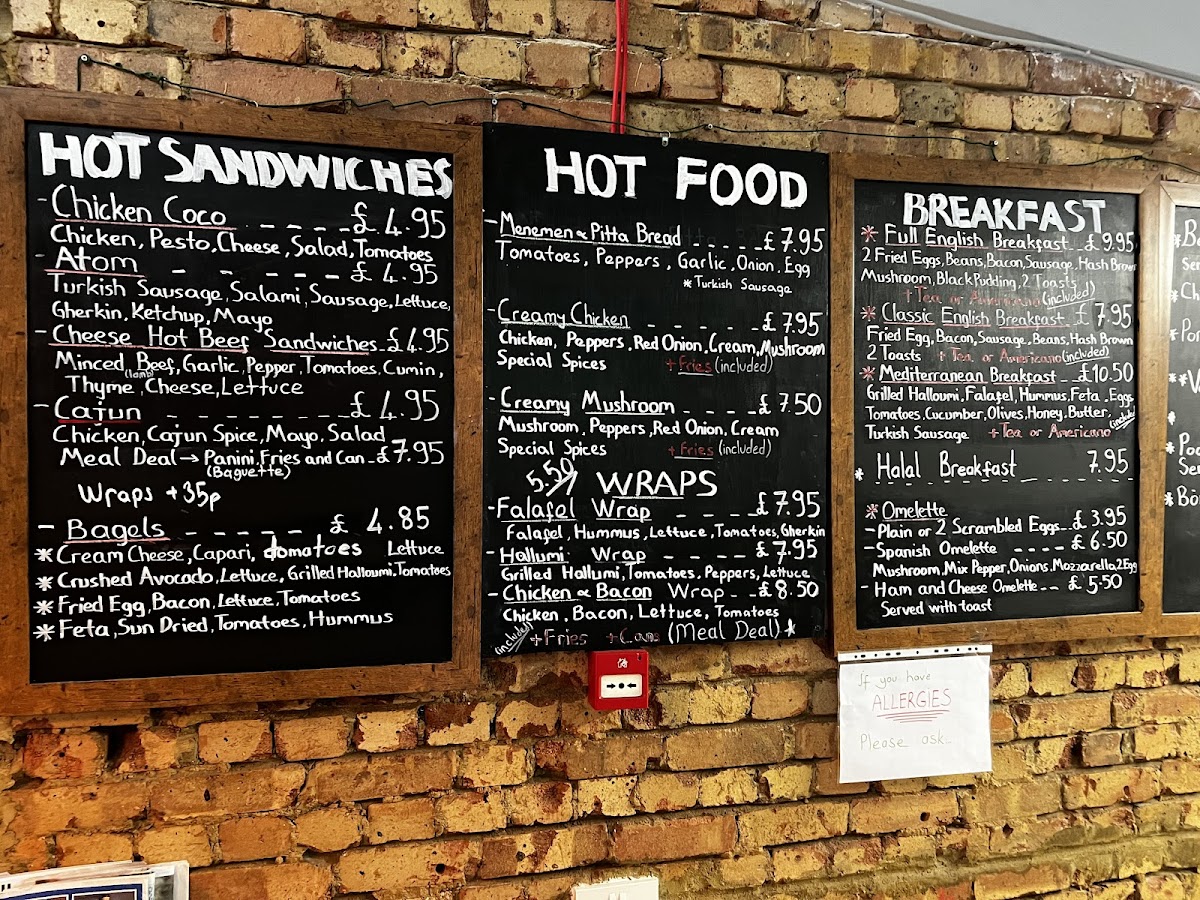 HOT SANDWICHES
- Chicken Coco - - - - £ 4.95
Chicken, Pesto, Cheese, Salad, Tomatoes
- Atom - - - - - - £ 4.95
Turkish Sausage, Salami, Sausage, Lettuce,
Gherkin, Ketchup, Mayo
- Cheese Hot Beef Sandwiches - £4.95
Minced, Beef, Garlic, Pepper, Tomatoes, Cumin,
(lamb)
Thyme, Cheese, Lettuce
- Cajun - - - - - - - - £ 4.95
Chicken, Cajun Spice, Mayo, Salad
Meal Deal → Panini, Fries and Can - £7.95
(Baguette)
Wraps + 35p
- Bagels - - - - - £ 4.85
* Cream Cheese, Capari, tomatoes Lettuce
* Crushed Avocado, Lettuce, Grilled Halloumi, Tomatoes
* Fried Egg, Bacon, Lettuce, Tomatoes
* Feta, Sun Dried, Tomatoes, Hummus
HOT FOOD
- Menemen & Pitta Bread - - - - - £ 7.95
Tomatoes, Peppers, Garlic, Onion, Egg
* Turkish Sausage
- Creamy Chicken - - - - - £ 7.95
Chicken, Peppers, Red Onion, Cream, Mushroom
Special Spices + Fries (included)
- Creamy Mushroom - - - - £ 7.50
Mushroom, Peppers, Red Onion, Cream
Special Spices + Fries (included)
5.50 WRAPS
- Falafel Wrap - - - - £ 7.95
Falafel, Hummus, Lettuce, Tomatoes, Gherkin
- Hallumi Wrap - - - - £ 7.95
Grilled Hallumi, Tomatoes, Peppers, Lettuce
- Chicken & Bacon Wrap - - £ 8.50
Chicken, Bacon, Lettuce, Tomatoes
(included) + Fries + Cans (Meal Deal) *
BREAKFAST
* Full English Breakfast - £ 9.95
2 Fried Eggs, Beans, Bacon, Sausage, Hash Brown
Mushroom, Black Pudding, 2 Toasts
+ Tea or Americano (included)
* Classic English Breakfast - £ 7.95
Fried Egg, Bacon, Sausage, Beans, Hash Brown
2 Toasts + Tea or Americano (included)
* Mediterranean Breakfast - - £10.50
Grilled Halloumi, Falafel, Hummus, Feta, Eggs
Tomatoes, Cucumber, Olives, Honey, Butter,
Turkish Sausage + Tea or Americano (include)
* Halal Breakfast 7.95
* Omelette
- Plain or 2 Scrambled Eggs - - £ 3.95
- Spanish Omelette - - - - £ 6.50
Mushroom, Mix Pepper, Onions, Mozzarella, 2 Egg
- Ham and Cheese Omelette - - £ 5.50
Served with toast
If you have
ALLERGIES
Please ask...